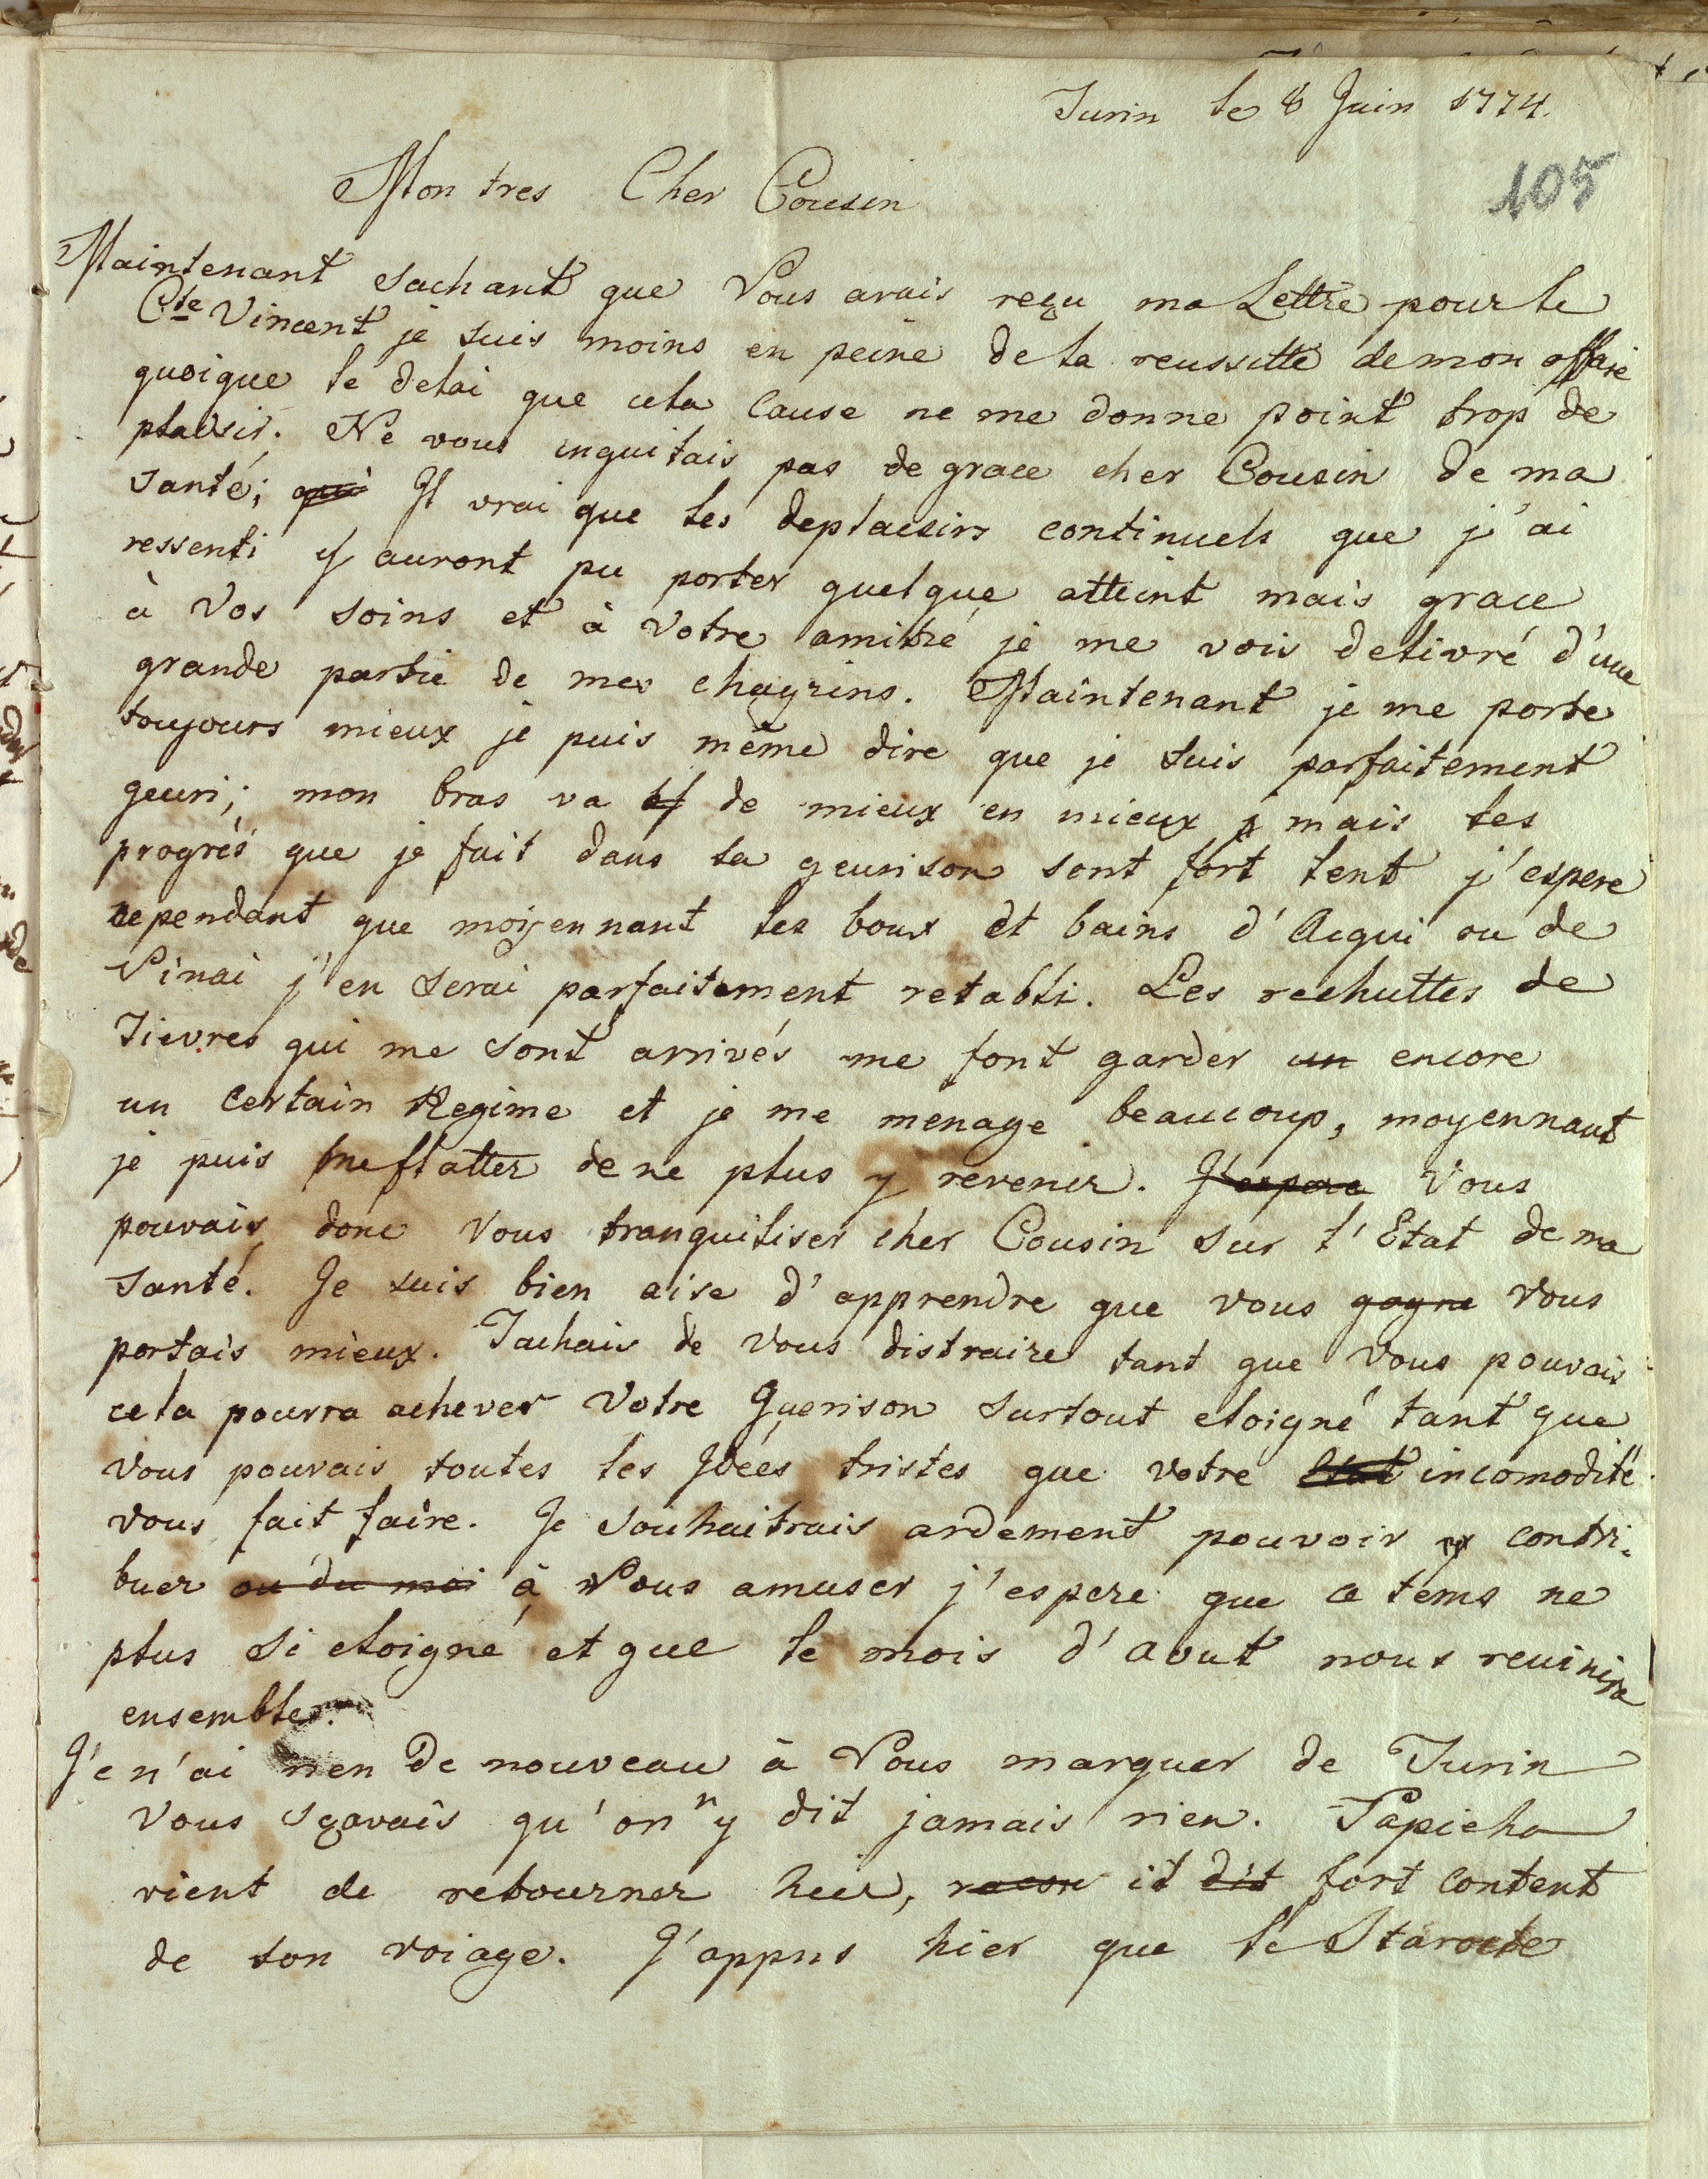 Turin le 8 Juin 1774.
105
Mon tres Cher Cousin
Maintenant sachant que Vous avais reçu ma Lettre pour le
Cte Vincent je suis moins en peine de la reussitte de mon affaire
quoique le delai que cela Cause ne me donne point trop de
plaisir. Ne vous inquitais pas de grace cher Cousin de ma
santé; qui Il vrai que les deplaisirs continuels que j'ai
ressenti y auront pu porter quelque atteint mais grace
à Vos soins et à Votre amitié je me vois delivré d'une
grande partie de mes chagrins. Maintenant je me porte
toujours mieux je puis même dire que je suis parfaitement
geuri; mon bras va de mieux en mieux mais les
progrés que je fait dans la geurison sont fort lent j'espere
cependant que moijennant les boux et bains d'Acqui ou de
Vinai j'en serai parfaitement retabli. Les rechuttes de
fievres qui me sont arrivés me font garder un encore
un certain Regime et je me menage beaucoup, moyennant
je puis me flatter de ne plus y revenir. J'espere Vous
pouvais donc Vous tranquiliser cher Cousin sur l'Etat de ma
santé. Je suis bien aise d'apprendre que vous gagne vous
portais mieux. Tachais de Vous distraire tant que Vous pouvais
cela pourra achever Votre Guerison surtout eloigné tant que
vous pouvais toutes les Idées tristes que votre Etat incomodité
vous fait faire. Je souhaitrais ardement pouvoir contri-
buer ou du moi à Vous amuser j'espere que ce tems ne
plus si eloigné et que le mois d'Avut nous reuinira
ensembles.
Je n'ai rien de nouveau à Vous marquer de Turin
Vous sçavais qu'on n y dit jamais rien. Papicha
vient de retourner hier, il dit fort content
de son voiage. J'appris hier que le Staroste